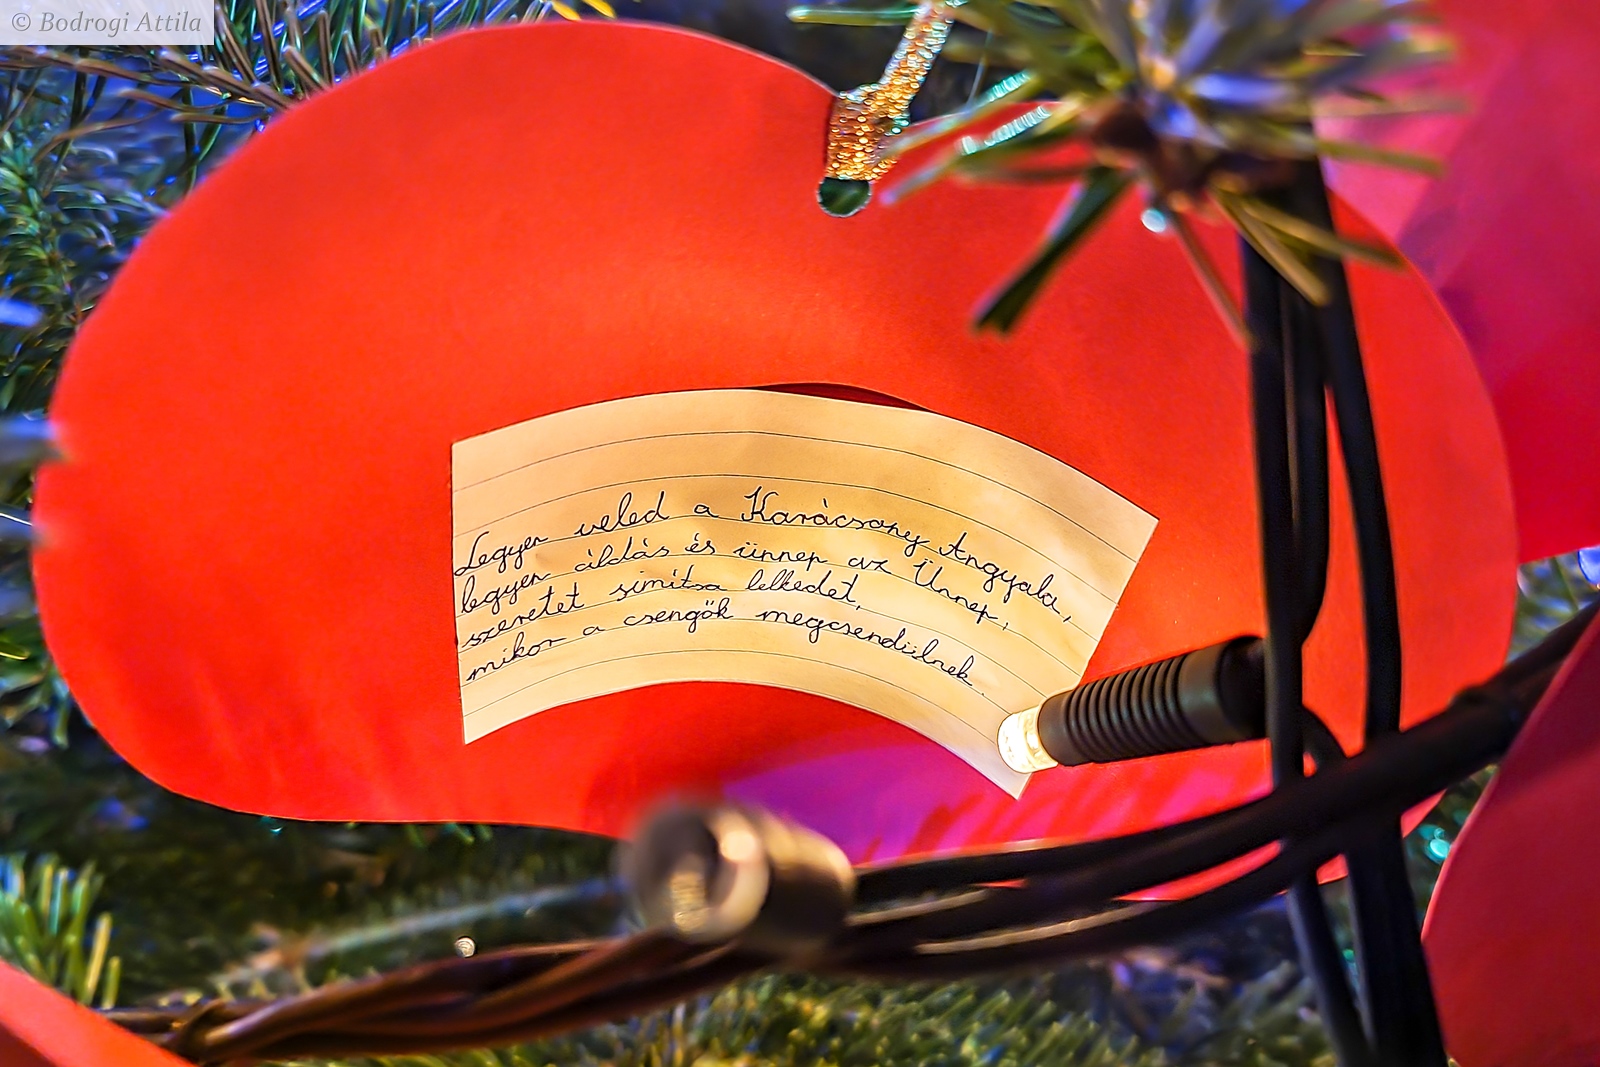 © Bodrogi Attila
Legyen veled a Karácsony Angyala,
legyen áldás és ünnep az Ünnep,
szeretet simítsa lelkedet,
mikor a csengők megcsendülnek.